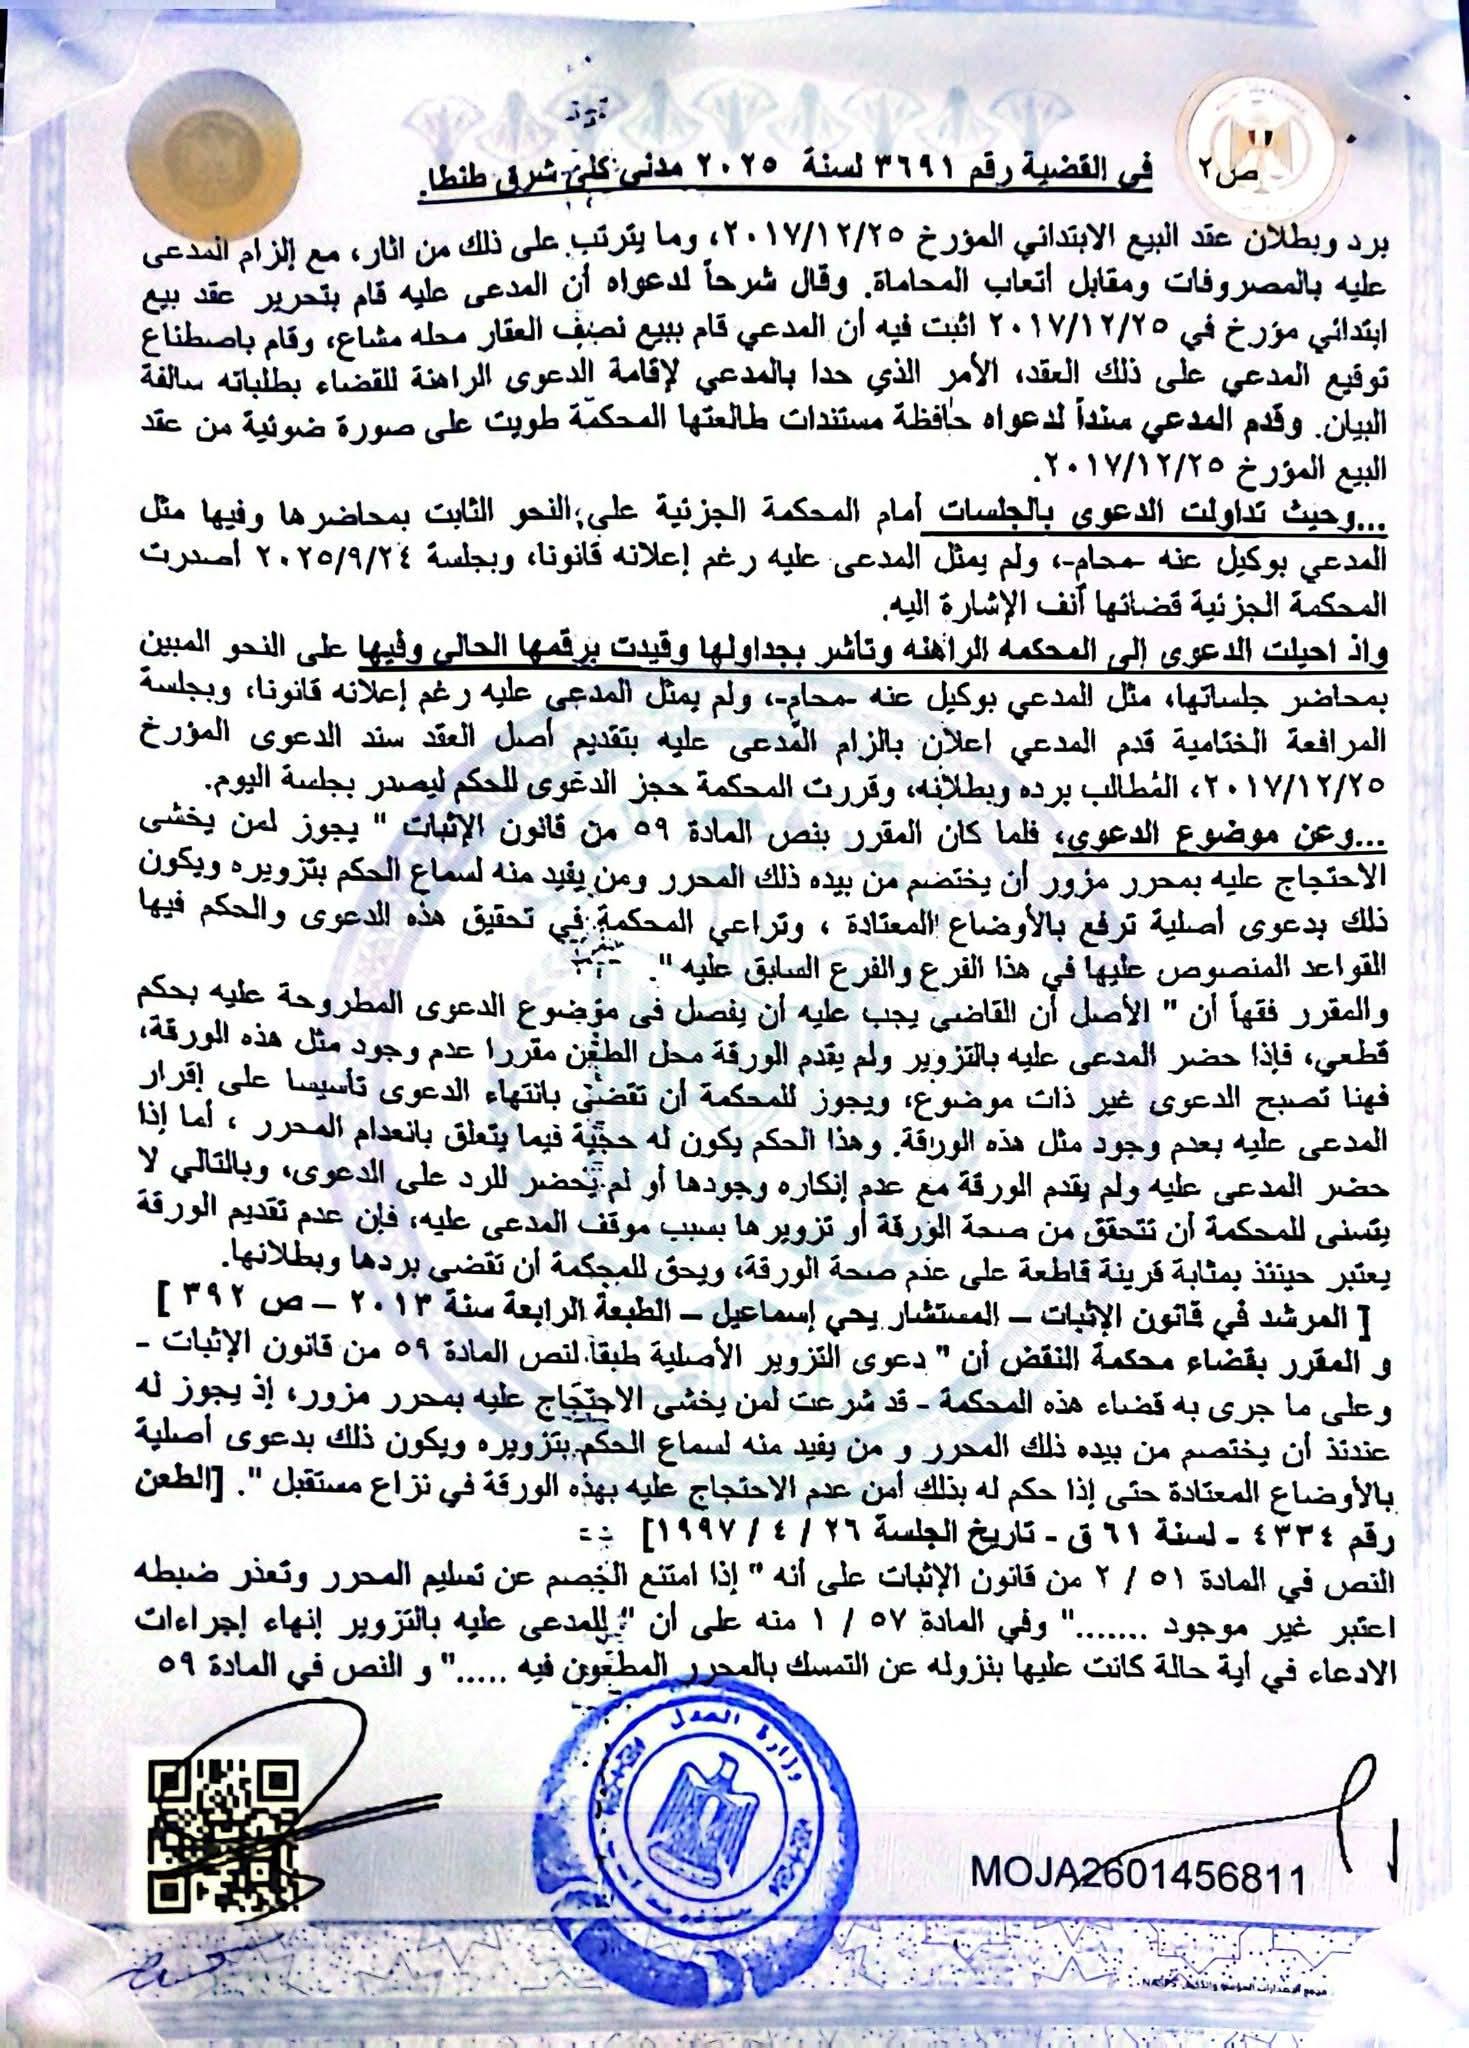 ص٢
في القضية رقم ٣٦٩١ لسنة ٢٠٢٥ مدني كلي شرق طنطا.
برد وبطلان عقد البيع الابتدائي المؤرخ ٢٠١٧/١٢/٢٥، وما يترتب على ذلك من اثار، مع إلزام المدعى
عليه بالمصروفات ومقابل أتعاب المحاماة. وقال شرحاً لدعواه أن المدعى عليه قام بتحرير عقد بيع
ابتدائي مؤرخ في ٢٠١٧/١٢/٢٥ اثبت فيه أن المدعي قام ببيع نصف العقار محله مشاع، وقام باصطناع
توقيع المدعي على ذلك العقد، الأمر الذي حدا بالمدعي لإقامة الدعوى الراهنة للقضاء بطلباته سالفة
البيان. وقدم المدعي سنداً لدعواه حافظة مستندات طالعتها المحكمة طويت على صورة ضوئية من عقد
البيع المؤرخ ٢٠١٧/١٢/٢٥.
...وحيث تداولت الدعوى بالجلسات أمام المحكمة الجزئية على النحو الثابت بمحاضرها وفيها مثل
المدعي بوكيل عنه -محام-، ولم يمثل المدعى عليه رغم إعلانه قانونا، وبجلسة ٢٠٢٥/٩/٢٤ أصدرت
المحكمة الجزئية قضائها آنف الإشارة اليه.
واذ احيلت الدعوى إلى المحكمه الراهنه وتأشر بجداولها وقيدت برقمها الحالي وفيها على النحو المبين
بمحاضر جلساتها، مثل المدعي بوكيل عنه -محام-، ولم يمثل المدعى عليه رغم إعلانه قانونا، وبجلسة
المرافعة الختامية قدم المدعي اعلان بالزام المدعى عليه بتقديم أصل العقد سند الدعوى المؤرخ
٢٠١٧/١٢/٢٥، المُطالب برده وبطلانه، وقررت المحكمة حجز الدعوى للحكم ليصدر بجلسة اليوم.
...وعن موضوع الدعوى، فلما كان المقرر بنص المادة ٥٩ من قانون الإثبات " يجوز لمن يخشى
الاحتجاج عليه بمحرر مزور أن يختصم من بيده ذلك المحرر ومن يفيد منه لسماع الحكم بتزويره ويكون
ذلك بدعوى أصلية ترفع بالأوضاع المعتادة ، وتراعي المحكمة في تحقيق هذه الدعوى والحكم فيها
القواعد المنصوص عليها في هذا الفرع والفرع السابق عليه ".
والمقرر فقهاً أن " الأصل أن القاضي يجب عليه أن يفصل فى موضوع الدعوى المطروحة عليه بحكم
قطعي، فإذا حضر المدعى عليه بالتزوير ولم يقدم الورقة محل الطعن مقررا عدم وجود مثل هذه الورقة،
فهنا تصبح الدعوى غير ذات موضوع، ويجوز للمحكمة أن تقضي بانتهاء الدعوى تأسيسا على إقرار
المدعى عليه بعدم وجود مثل هذه الورقة. وهذا الحكم يكون له حجية فيما يتعلق بانعدام المحرر ، أما إذا
حضر المدعى عليه ولم يقدم الورقة مع عدم إنكاره وجودها أو لم يحضر للرد على الدعوى، وبالتالي لا
يتسنى للمحكمة أن تتحقق من صحة الورقة أو تزويرها بسبب موقف المدعى عليه، فإن عدم تقديم الورقة
يعتبر حينئذ بمثابة قرينة قاطعة على عدم صحة الورقة، ويحق للمحكمة أن تقضى بردها وبطلانها.
[ المرشد في قانون الإثبات – المستشار يحي إسماعيل – الطبعة الرابعة سنة ٢٠١٣ – ص ٣٩٢ ]
و المقرر بقضاء محكمة النقض أن " دعوى التزوير الأصلية طبقا لنص المادة ٥٩ من قانون الإثبات -
وعلى ما جرى به قضاء هذه المحكمة - قد شرعت لمن يخشى الاحتجاج عليه بمحرر مزور، إذ يجوز له
عندئذ أن يختصم من بيده ذلك المحرر و من يفيد منه لسماع الحكم بتزويره ويكون ذلك بدعوى أصلية
بالأوضاع المعتادة حتى إذا حكم له بذلك أمن عدم الاحتجاج عليه بهذه الورقة في نزاع مستقبل ". [الطعن
رقم ٤٣٣٤ - لسنة ٦١ ق - تاريخ الجلسة ٢٦ / ٤ / ١٩٩٧]
النص في المادة ٥١ / ٢ من قانون الإثبات على أنه " إذا امتنع الخصم عن تسليم المحرر وتعذر ضبطه
اعتبر غير موجود ......." وفي المادة ٥٧ / ١ منه على أن " للمدعى عليه بالتزوير إنهاء إجراءات
الادعاء في أية حالة كانت عليها بنزوله عن التمسك بالمحرر المطعون فيه ....." و النص في المادة ٥٩
وزارة العدل
MOJA2601456811